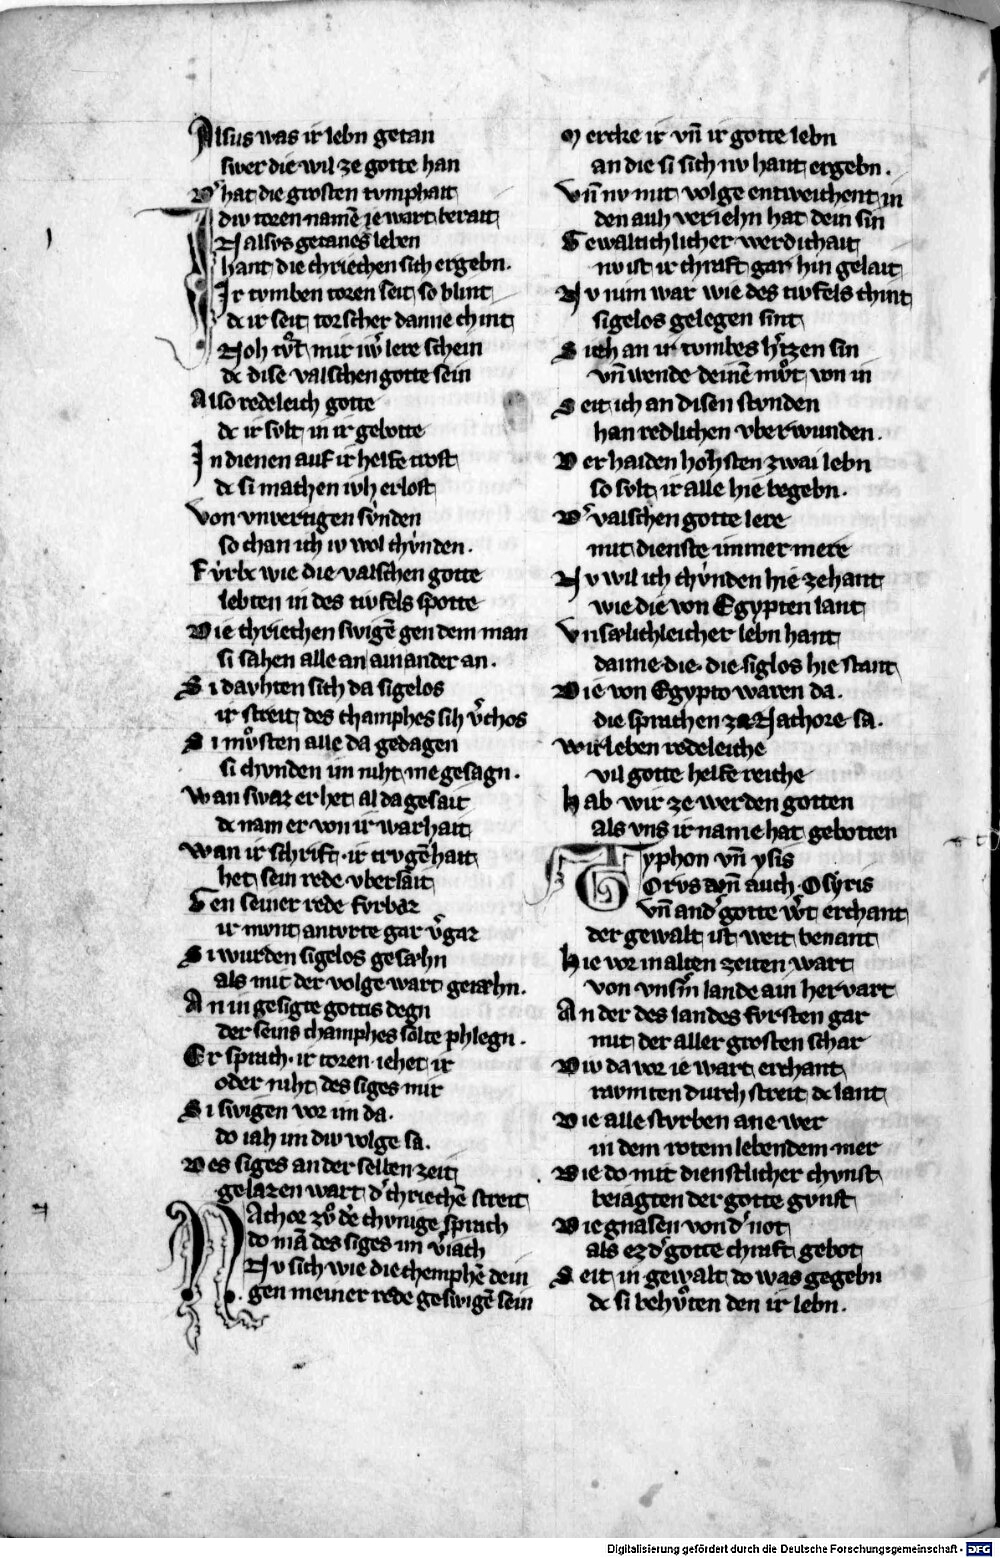 Alsus was ir lebn getan
swer die wil ze gotte han
Dˢ hat die grosten tvmphait
div toren namē ie wart berait
IN alsvs getanes leben
hant die chriechen sich ergebn.
Ir tvmben toren seit so blint
dc ir seit torscher danne chint
Noh tv̊t mir iwˢ lere schein
dc dise valschen gotte sein
Also redeleich gotte
dc ir svlt in ir gebotte
In dienen auf ir helfe trost
dc si machen ivh erlost
Von vnvertigen svnden
so chan ich iv wol chvnden.
Fvrbc wie die valschen gotte
lebten in des tivfels spotte
Die chriechen swigē gen dem man
si sahen alle an ainander an.
Si davhten sich da sigelos
ir streit des champhes sih vˢchos
Si mv̊sten alle da gedagen
si chvnden im niht me gesagn.
Wan swaz er het al da gesait
dc nam er von ir warhait
Wan ir schrift ir trvgēhait
het sein rede vbersait
Gen seiner rede fvrbaz
ir mvnt antvrte gar vˢgaz
Si wurden sigelos gesæhn
als mit der volge wart geiæhn.
An in gesigte gottis degn
der seins champhes solte phlegn.
Er sprach ir toren iehet ir
oder niht des siges mir
Si swigen vor im da.
do iah im div volge sa.
Des siges an der selben zeit
gelazen wart dˢ chriechē streit
NAchor zv̊ dē chvnige sprach
do mā des siges im vˢiach
Nv sich wie die chemphē dein
gen meiner rede geswigē sein
Mercke ir vn̄ ir gotte lebn
an die si sich nv hant ergebn.
Vn̄ nv mit volge entweichent in
den auh veriehn hat dein sin
Gewaltichlicher werdichait
nv ist ir chraft gar hin gelait
Nv nim war wie des tivfels chint
sigelos gelegen sint
Sieh an ir tvmbes hˢtzen sin
vn̄ wende deinē mv̊t von in
Seit ich an disen stvnden
han redlichen vberwunden.
Der haiden hohsten zwai lebn
so svlt ir alle hie begebn.
Dˢ valschen gotte lere
mit dienste immer mere
Nv wil ich chvnden hie zehant
wie die von Egypten lant
Vnsælichleicher lebn hant
danne die die siglos hie stant
Die von Egypto waren da.
die sprachen ze Nachore sa.
Wir leben redeleiche
vil gotte helfe reiche
Hab wir ze werden gotten
als vns ir name hat gebotten
Typhon vn̄ ysis
Orvs vn̄ auch Osyris
vn̄ andˢ gotte wˢt erchant
der gewalt ist weit benant
Hie vor in alten zeiten wart
von vnsˢm lande ain hervart
An der des landes fvrsten gar
mit der aller grosten schar
Div da vor ie wart erchant
ravmten durch streit dc lant
Die alle stvrben ane wer
in dem rotem lebendem mer
Die do mit dienstlicher chvnst
beiagten der gotte gvnst
Die gnasen von dˢ not
als ez dˢ gotte chraft gebot
Seit in gewalt do was gegebn
dc si behv̊ten den ir lebn.
Digitalisierung gefördert durch die Deutsche Forschungsgemeinschaft - DFG